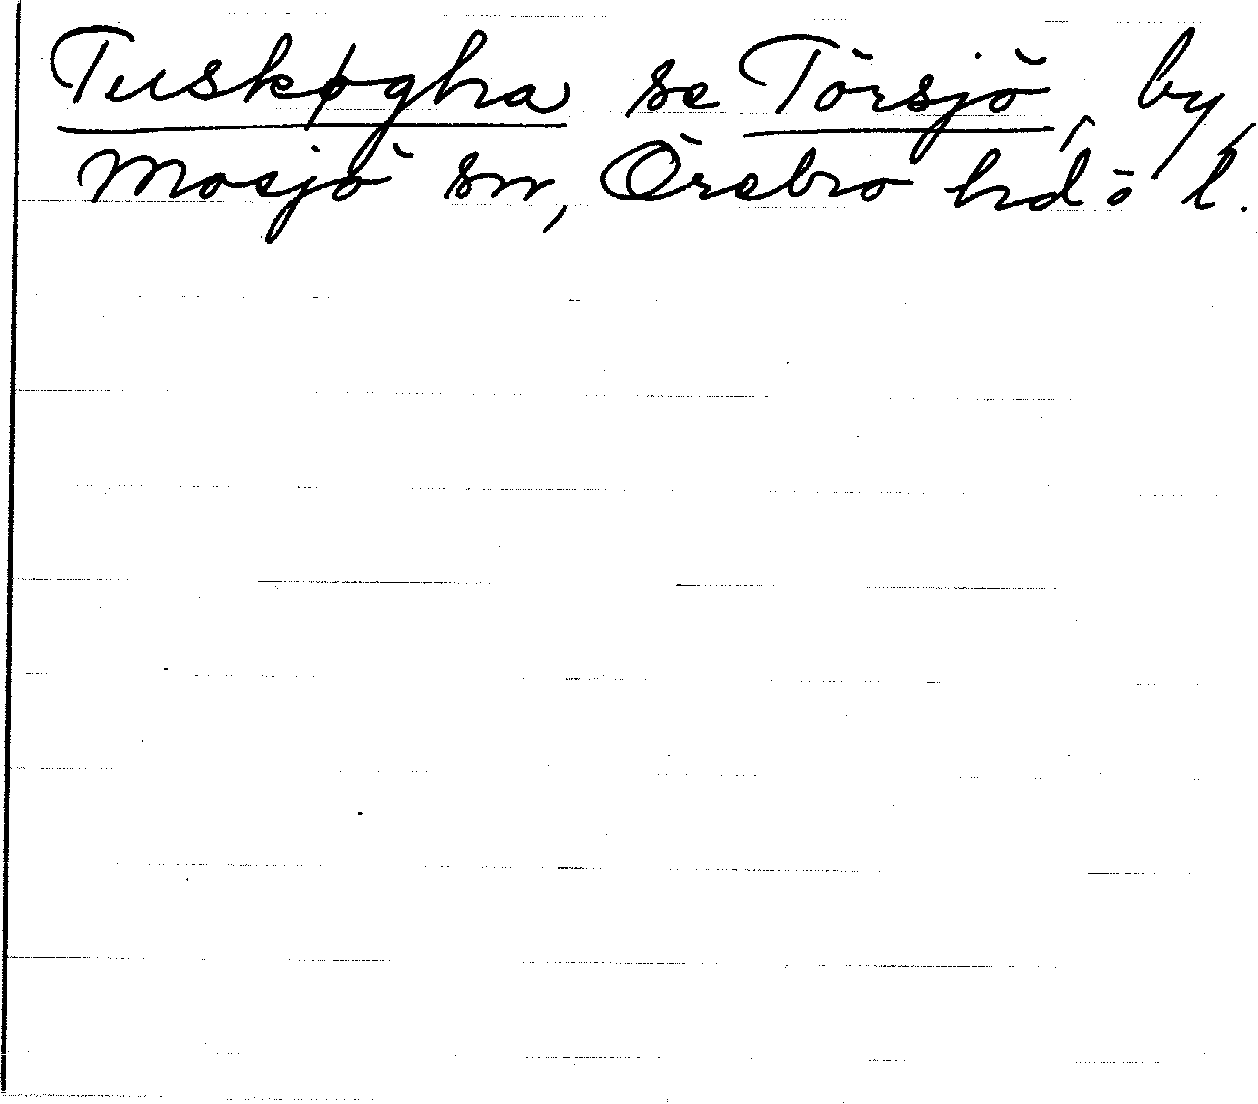 Tuskøgha se Törsjö, by,
Mosjö sn, Örebro hd o l.